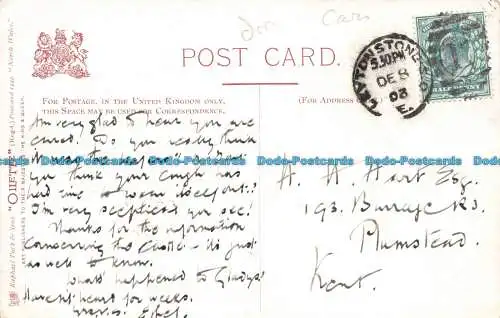 Dori Cars
POST CARD.
LEYTONSTONE
5.30PM
DE 8
03
E.
HALFPENNY
FOR POSTAGE, IN THE UNITED KINGDOM ONLY,
THIS SPACE MAY BE USED FOR CORRESPONDENCE.
(FOR ADDRESS
Am very glad to hear you are
cured. Do you really think
you think your cough has
had time to worn itself out?
I'm very sceptical you see!
Thanks for the information
concerning the Castle - it's just
as well to know.
What's happened to Gladys?
Haven't heard for weeks.
Ethel.
H. A. Hart Esq.
193. Burrage Rd.
Plumstead.
Kent.
Raphael Tuck & Sons' "OILETTE" (Regd.) Postcard "North Wales"
ART PUBLISHERS TO THEIR MAJESTIES THE KING & QUEEN.
Do-Postcards.com